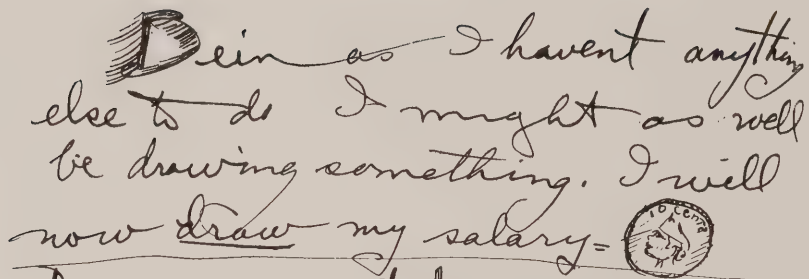 Bein as I havent anything
else to do I might as well
be drawing something. I will
now draw my salary=
10 Cents